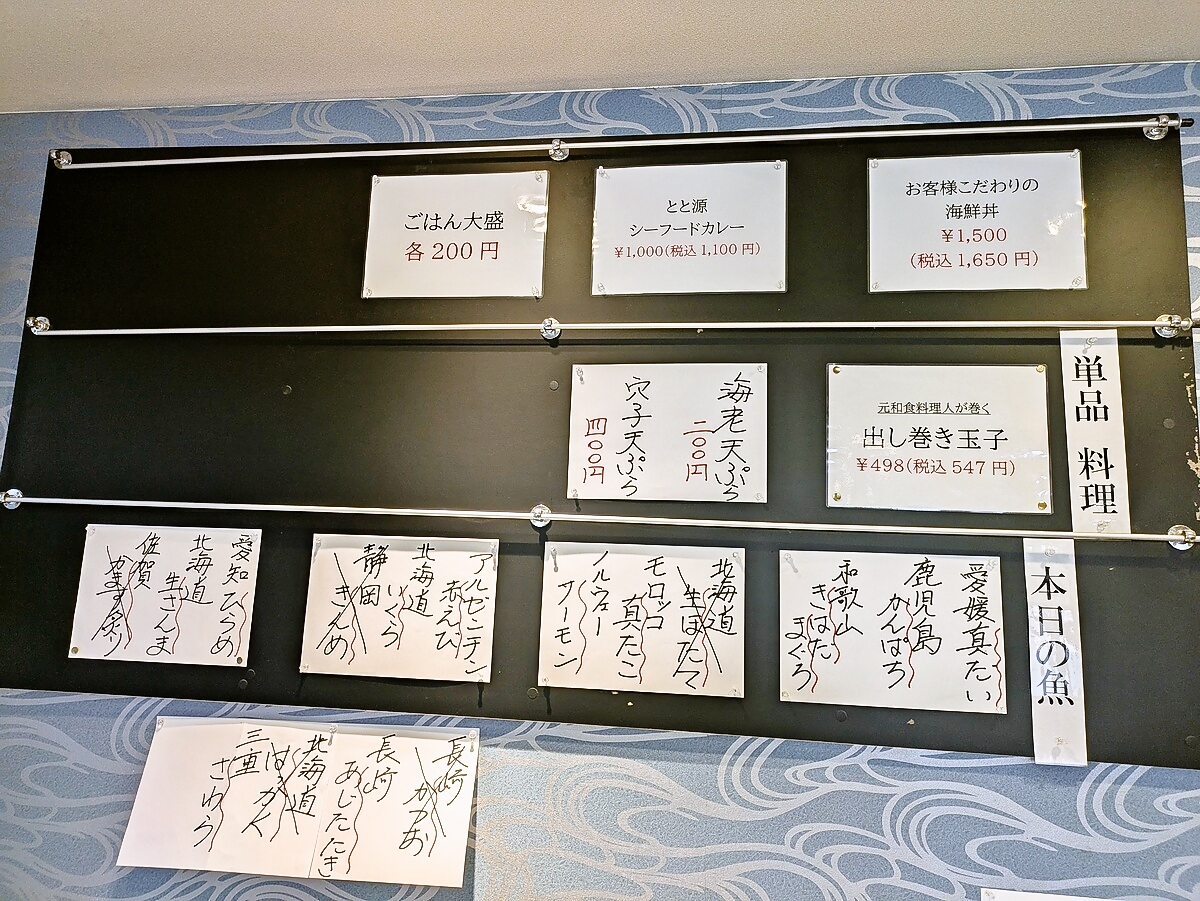 お客様こだわりの
海鮮丼
￥1,500
(税込1,650円)
とと源
シーフードカレー
￥1,000(税込1,100円)
ごはん大盛
各200円
単品 料理
元和食料理人が巻く
出し巻き玉子
￥498(税込547円)
海老天ぷら
二〇〇円
穴子天ぷら
四〇〇円
本日の魚
愛媛真たい
鹿児島
かんぱち
和歌山
きはだ
まぐろ
北海道
生ほたて
モロッコ
真たこ
ノルウェー
サーモン
アルゼンチン
赤えび
北海道
いくら
静岡
きんめ
愛知ひらめ
北海道
生さんま
佐賀
かます炙り
長崎
かつお
長崎
あじたたき
北海道
はっかく
三重
さわら